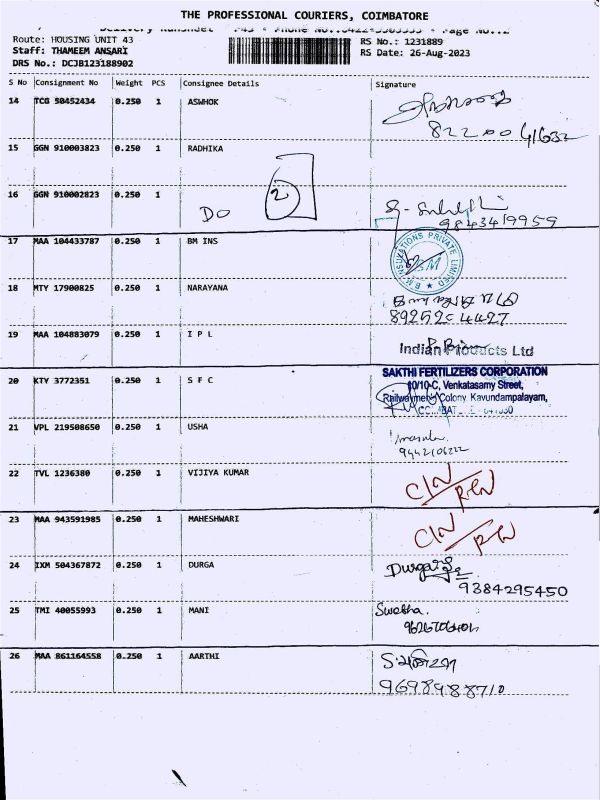 THE PROFESSIONAL COURIERS, COIMBATORE
Route: HOUSING UNIT 43
RS No.: 1231889
Staff: THAMEEM ANSARI
RS Date: 26-Aug-2023
DRS No.: DCJB123188902
S No Consignment No Weight PCS Consignee Details Signature
14 TCG 50452434 0.250 1 ASWHOK
15 GGN 910003823 0.250 1 RADHIKA
16 GGN 910002823 0.250 1
DO 2
9843419959
17 MAA 104433787 0.250 1 BM INS
B.M. INSULATIONS PRIVATE LIMITED
18 MTY 17900825 0.250 1 NARAYANA
19 MAA 104883079 0.250 1 I P L
Indian Products Ltd
20 KTY 3772351 0.250 1 S F C
SAKTHI FERTILIZERS CORPORATION
10/10-C, Venkatasamy Street,
Railwaymen's Colony, Kavundampalayam,
21 VPL 219508650 0.250 1 USHA
9442106222
22 TVL 1236380 0.250 1 VIJIYA KUMAR
23 MAA 943591985 0.250 1 MAHESHWARI
24 IXM 504367872 0.250 1 DURGA
Durga
9384295450
25 TMI 40055993 0.250 1 MANI
Swetha.
26 MAA 861164558 0.250 1 AARTHI
9698988710